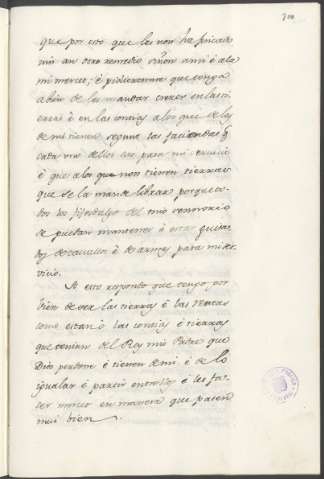 que por esto que les non ha fincado
nin an otro remedio, sinon a mi é a la
mi merced; é pidieronme que tenga
a bien de les mandar crecer en las ti-
erras é en las contias a los que de las
de mi tienen segunt las faciendas q
cada uno dellos ha para mi servicio
é que a los que non tienen tierras
que se la mande librar porque to-
dos los fijosdalgo del mio sennorio
se puedan mantener é estar guisa-
dos de cavallos é de armas para mi ser-
vicio.
A esto respondo que tengo por
bien de ver las tierras é las rentas
como estan é las contias é tierras
que tenian del Rey mio Padre que
Dios perdone é tienen de mi é de lo
igualar é partir entrellos é les fa-
cer merced en manera que pasen
mui bien